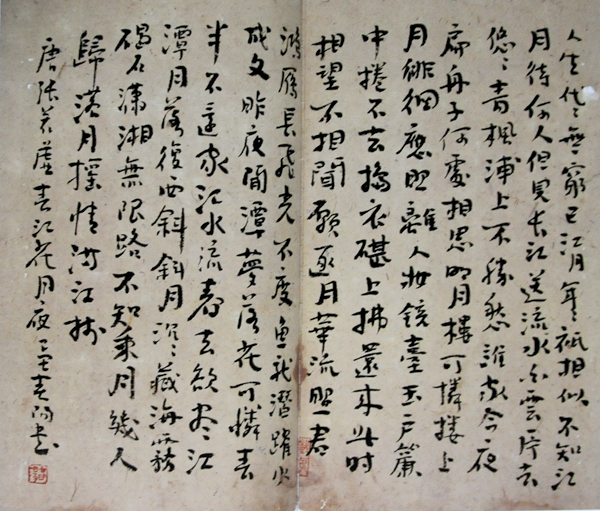 人生代々無窮已江月年々祇相似不知江
月待何人但見長江送流水白雲一片去
悠々青楓浦上不勝愁誰家今夜
扁舟子何處相思明月樓可憐樓上
月徘徊應照離人妝鏡臺玉戶簾
中捲不去擣衣碪上拂還來此時
相望不相聞願逐月華流照君
鴻雁長飛光不度魚龍潛躍水
成文昨夜閑潭夢落花可憐春
半不還家江水流春去欲盡江
潭月落復西斜斜月沉々藏海霧
碣石瀟湘無限路不知乘月幾人
歸落月搖情滿江樹
唐張若虛春江花月夜書